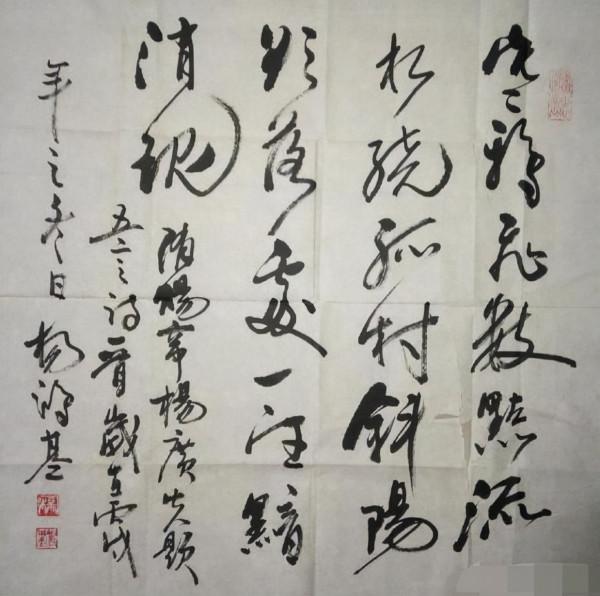 寒鴉飛數點流
水繞孤村斜陽
欲落處一望黯
消魂
隋煬帝楊廣失題
五言詩一首歲在丙戌
年之冬日楊鴻基